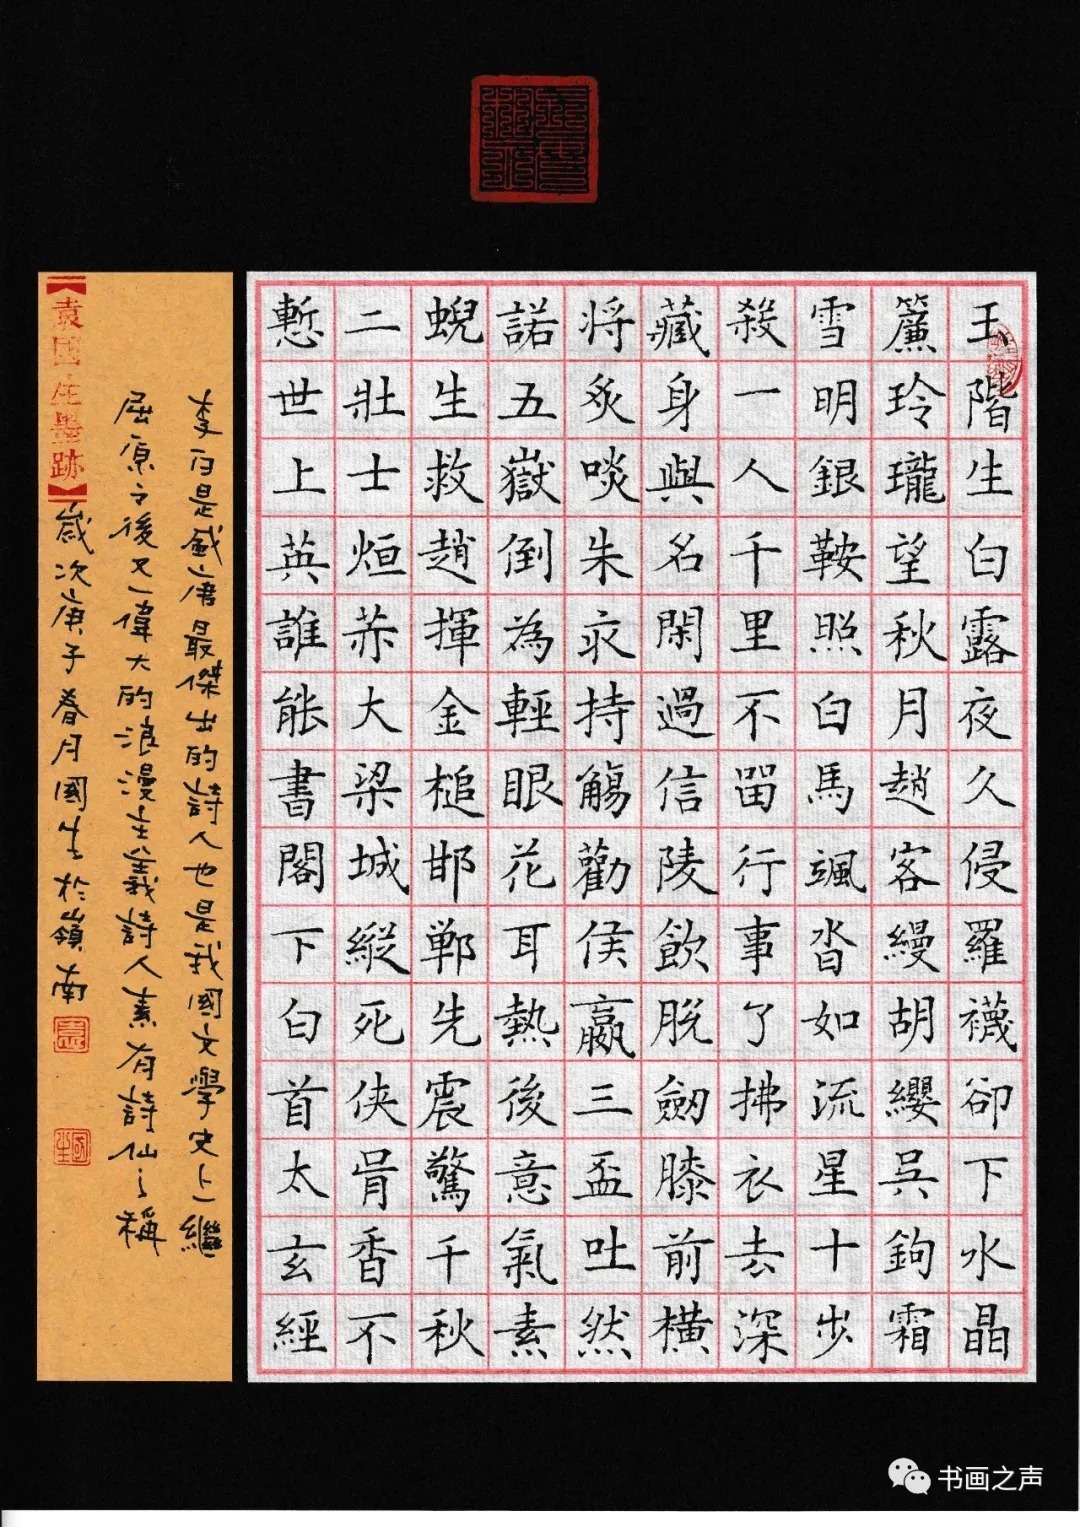 玉階生白露夜久侵羅襪卻下水晶
簾玲瓏望秋月趙客縵胡纓吳鉤霜
雪明銀鞍照白馬颯沓如流星十步
殺一人千里不留行事了拂衣去深
藏身與名閑過信陵飲脫劒膝前橫
将炙啖朱亥持觴勸侯嬴三盃吐然
諾五嶽倒為輕眼花耳熱後意氣素
蜺生救趙揮金槌邯郸先震驚千秋
二壯士烜赤大梁城縱死侠骨香不
慙世上英誰能書閣下白首太玄經
李白是盛唐最傑出的詩人也是我國文學史上繼
屈原之後又一偉大的浪漫主義詩人素有詩仙之稱
【袁國生墨跡】
歲次庚子春月國生於嶺南
袁
國生
书画之声